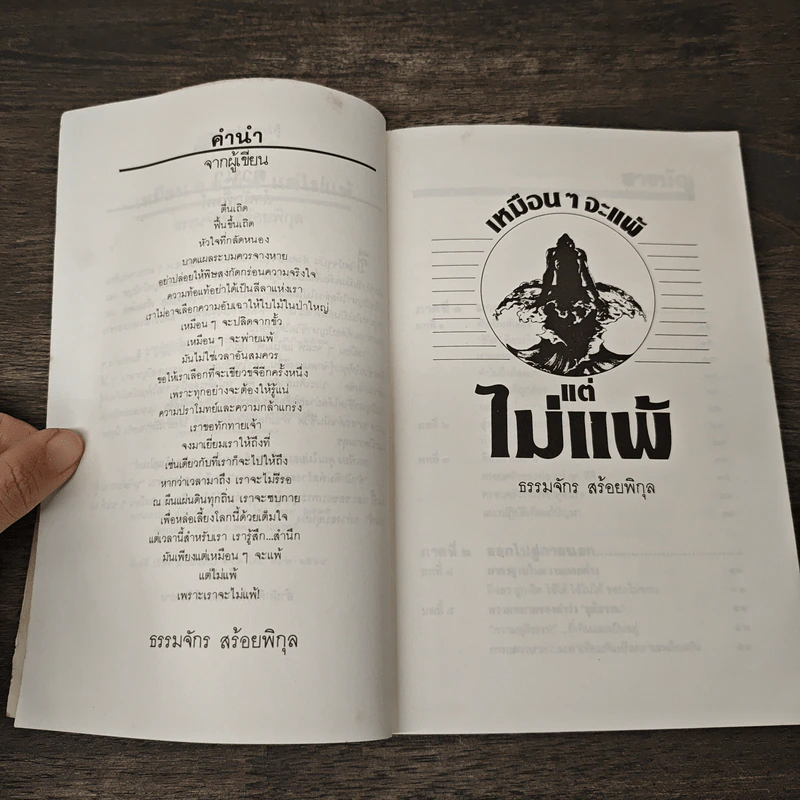 คำนำ
จากผู้เขียน
ตื่นเถิด
ฟื้นขึ้นเถิด
หัวใจที่กลัดหนอง
บาดแผลระบมควรจางหาย
อย่าปล่อยให้พิษสงกัดกร่อนความจริงใจ
ความท้อแท้อย่าได้เป็นลีลาแห่งเรา
เราไม่อาจเลือกความอับเฉาให้ใบไม้ในป่าใหญ่
เหมือน ๆ จะปลิดจากขั้ว
เหมือน ๆ จะพ่ายแพ้
มันไม่ใช่เวลาอันสมควร
ขอให้เราเลือกที่จะเขียวขจีอีกครั้งหนึ่ง
เพราะทุกอย่างจะต้องให้รู้แน่
ความปราโมทย์และความกล้าแกร่ง
เราขอทักทายเจ้า
จงมาเยี่ยมเราให้ถึงที่
เช่นเดียวกับที่เราก็จะไปให้ถึง
หากว่าเวลามาถึง เราจะไม่รีรอ
ณ ผืนแผ่นดินทุกถิ่น เราจะซบกาย
เพื่อหล่อเลี้ยงโลกนี้ด้วยเต็มใจ
แต่เวลานี้สำหรับเรา เรารู้สึก...สำนึก
มันเพียงแต่เหมือน ๆ จะแพ้
แต่ไม่แพ้
เพราะเราจะไม่แพ้!
ธรรมจักร สร้อยพิกุล
เหมือน ๆ จะแพ้
แต่
ไม่แพ้
ธรรมจักร สร้อยพิกุล